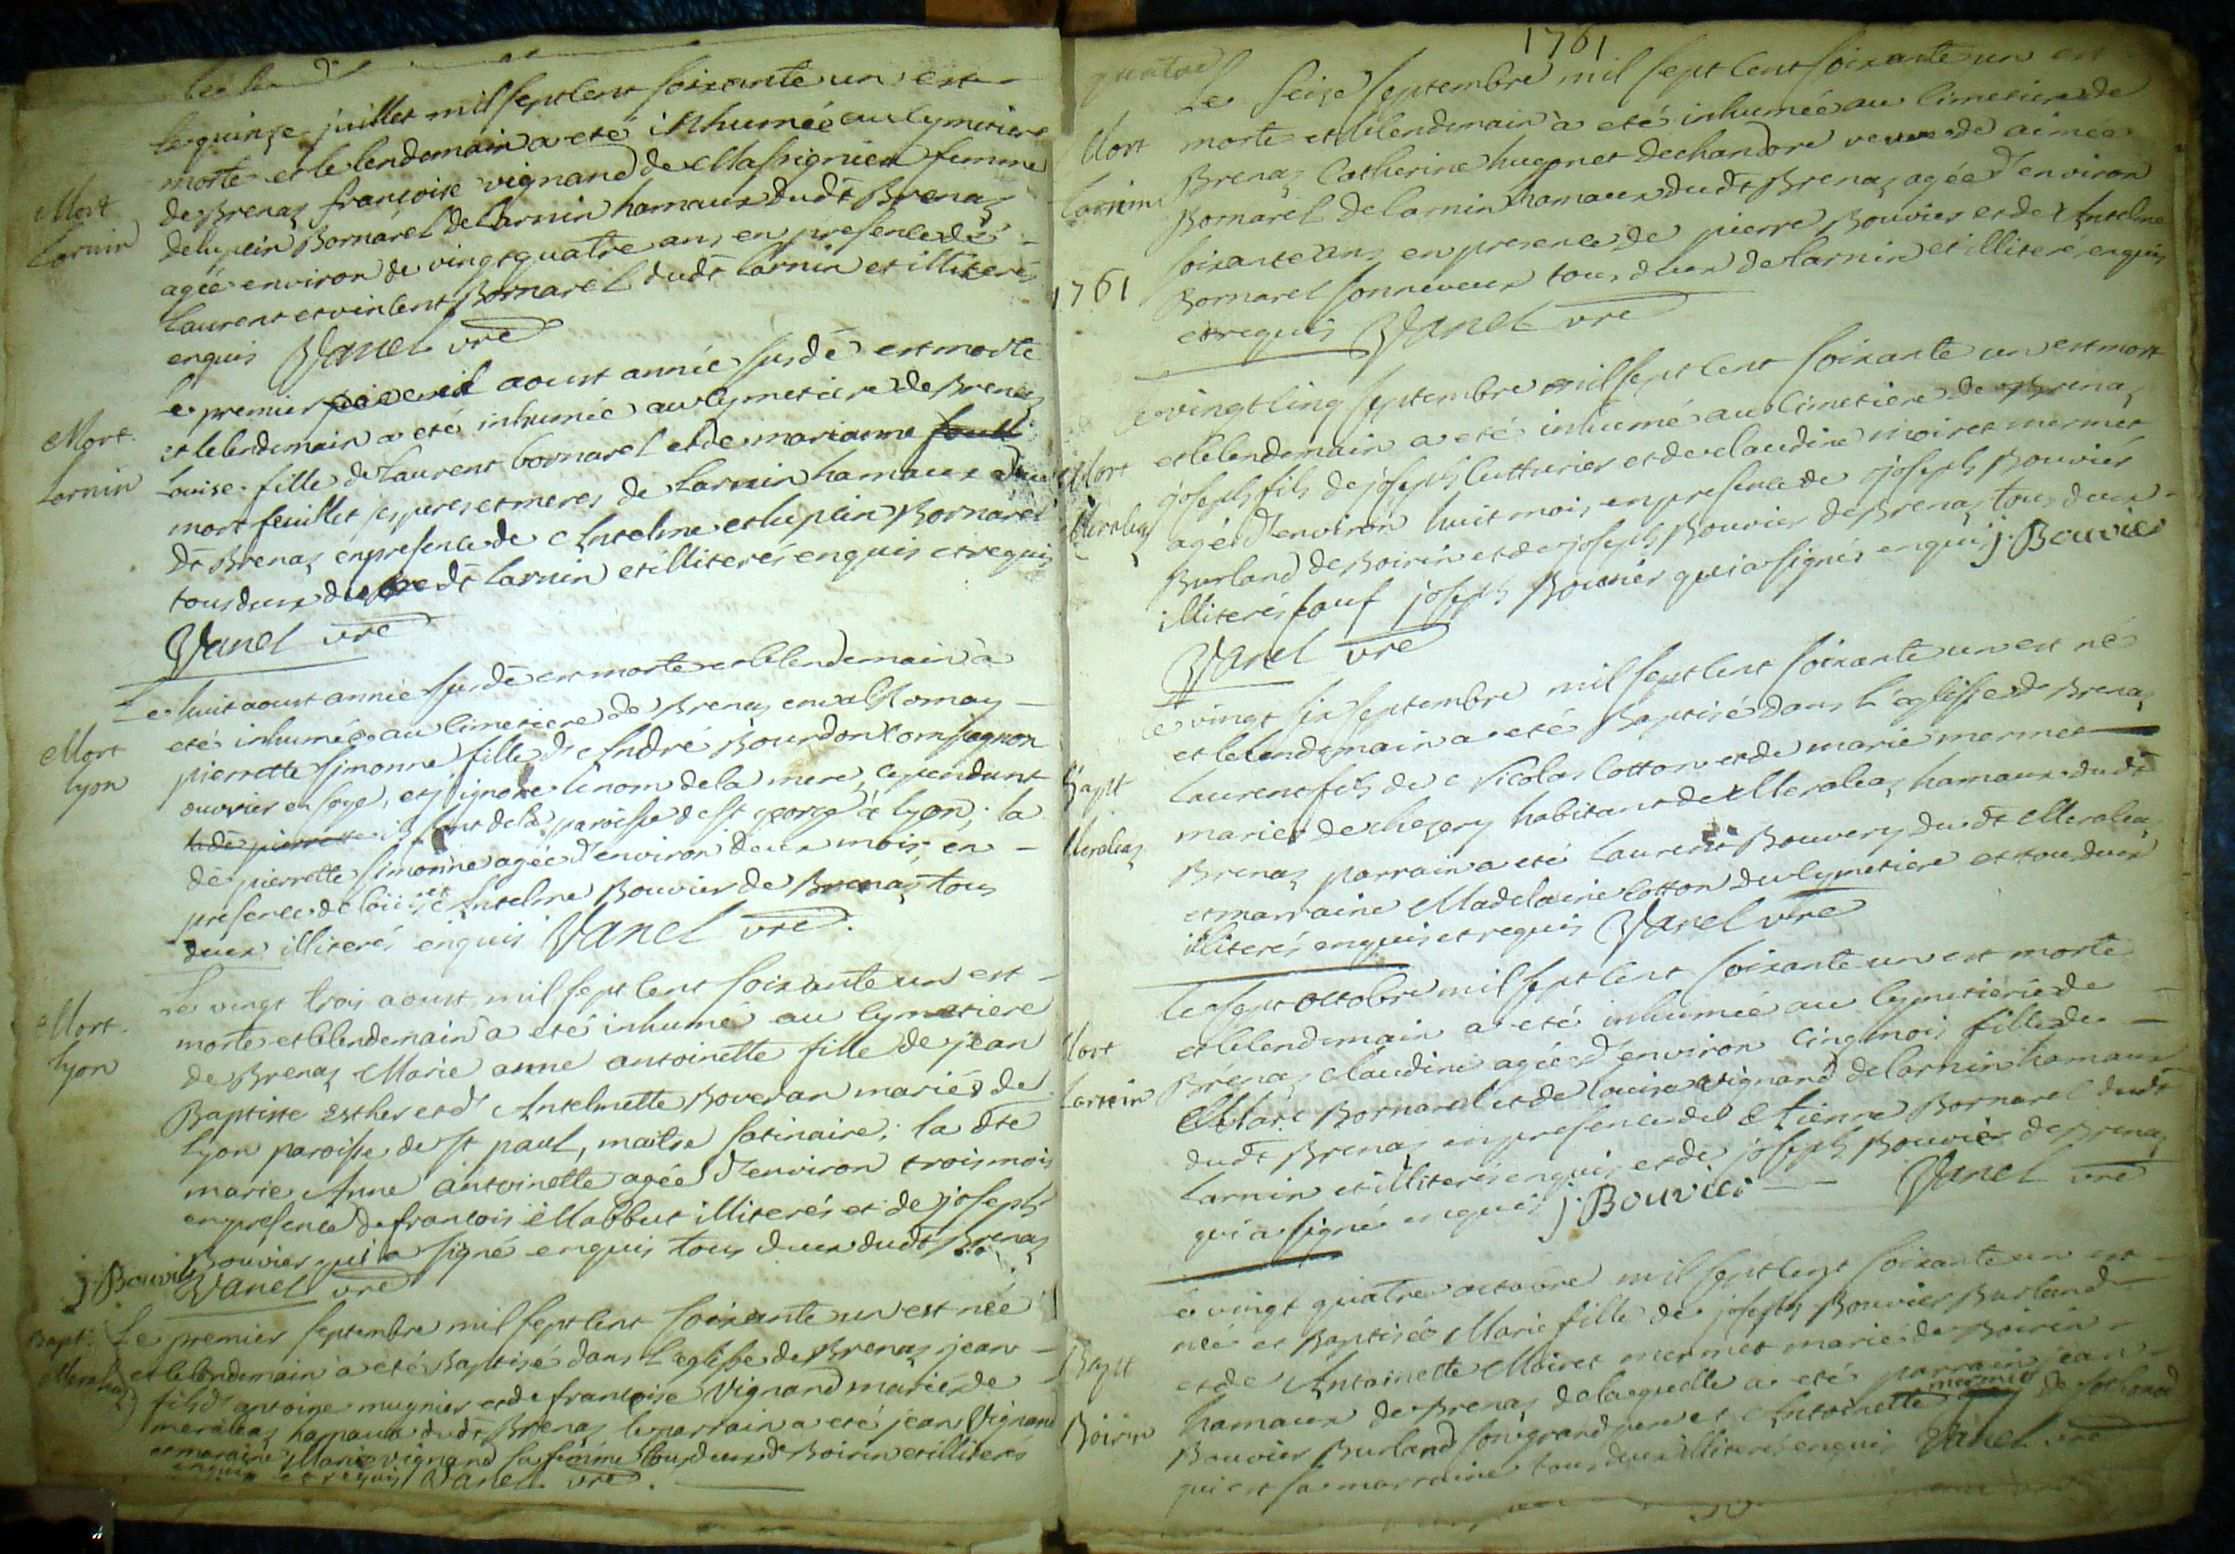 Le quinze juillet mil sept cent soixante un est
morte et le lendemain a eté inhumée au cymetiere
Mort
Larnin
de Brenaz françoise vignand de Massignieu femme
de lupcin Bornarel de Larnin hamaux dudt Brenaz
agée environ de vingt quatre ans en presence de
Laurent et vincent Bornarel dudt Larnin et illiterés
enquis Vanel vre
Le premier aoust année susde est morte
Mort
Larnin
et le lendemain a eté inhumée au cymetiere de Brenaz
Louise fille de Laurent bornarel et de marianne
mort feuillet ses peres et meres de Larnin hamaux du
dt Brenaz en presence de Anselme et lupcin Bornarel
tous deux du dt Larnin et illiterés enquis et requis
Vanel vre
Le huit aoust année susde est morte et le lendemain a
Mort
lyon
eté inhumée au cimetiere de Brenaz en valRomay
pierrette simonne fille d'André Bourdon compagnon
ouvrier en soye, et j'ignore le nom de la mere, cependant
lade pierrette ils sont de la paroisse de st george à lyon; la
de pierrette simonne agée d'environ deux mois en
presence de loüis et Anselme Bouvier de Brenaz tous
deux illiterés enquis Vanel vre.
Le vingt trois aoust mil sept cent soixante un est
Mort.
lyon
morte et le lendemain a eté inhumé au cymetiere
de Brenaz Marie anne antoinette fille de jean
Baptiste Esther et d'Anselmette Boveran mariés de
lyon paroisse de st paul, maitre satinaire; la dte
marie Anne antoinette agée d'environ trois mois
en presence de francois Mabbut illiterés et de joseph
Bouvier qui a signé enquis tous deux dudt Brenaz
j. Bouvier Vanel vre
Bapt.
Meraleaz
Le premier septembre mil sept cent soixante un est née
et le lendemain a eté Baptisé dans L'eglisse de Brenaz jean
fils d'antoine mugnier et de françoise Vignand mariés de
meraleaz hamaux dudt Brenaz le parrain a eté jean Vignand
et maraine Marie vignand sa femme tous deux de Boirin et illiterés
enquis et requis Vanel vre.
1761
quatre
Le seize septembre mil sept cent soixante un est
Mort
Larnin
morte et le lendemain a eté inhumée au cimetiere de
Brenaz Catherine hugonet de chandore veuve de aimée
Bornarel de Larnin hamaux dudt Brenaz agée d'environ
soixante ans en presence de pierre Bouvier et de Anselme
1761
Bornarel son neveux tous deux de Larnin et illiterés enquis
et requis Vanel vre
Le vingt cinq septembre mil sept cent soixante un est mort
Mort
Meraleaz
et le lendemain a eté inhumé au cimetiere de Brenaz
joseph fils de joseph Cutturier et de claudine moiret mermet
agé d'environ huit mois en presence de joseph Bouvier
Burland de Boirin et de joseph Bouvier de Brenaz tous deux
illiterés sauf joseph Bouvier qui a signés enquis j. Bouvier
Vanel vre
Le vingt six septembre mil sept cent soixante un est né
et le lendemain a eté Baptisé dans L'eglisse de Brenaz
Bapt
Meraleaz
Laurent fils de Nicolas Cotton et de marie mermet
mariés de chezery habitant de Meraleaz hamaux dudt
Brenaz parrain a eté Laurent Bouvery dudt Meraleaz
et marraine Madelaine Cotton du Cymetiere et tous deux
illiterés enquis et requis Vanel vre
Le sept octobre mil sept cent soixante un est morte
et le lendemain a eté inhumée au cymetiere de
Mort
Larnin
Brénaz claudine agée d'environ cinq mois fille de
Marc Bornarel et de louise vignand de Larnin hamaux
dudt Brenaz en presence de Etienne Bornarel dudt
Larnin et illiterés enquis et de joseph Bouvier de Brenaz
qui a signé enquis j. Bouvier Vanel vre
Le vingt quatre octobre mil sept cent soixante un est
née et Baptisée Marie fille de joseph Bouvier Burland
Bapt
Boirin
et de Antoinette Moiret mermet mariés de Boirin
hamaux de Brenaz de laquelle a eté parrain jean
Bouvier Burland son grand pere et Antoinette mermet de sothonod
qui est sa marraine tous deux illiterés enquis Vanel vre